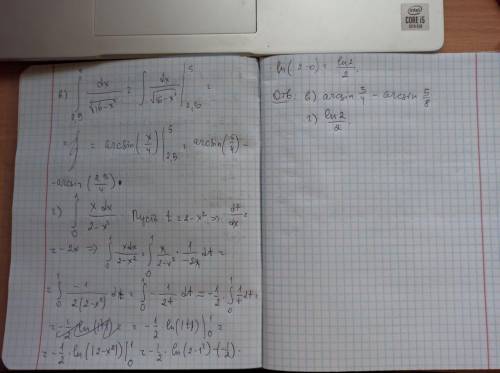 intel
CORE i5
в) ∫_{2,5}^{5} dx/√(16-x²) = ∫ dx/√(16-x²) |_{2,5}^{5} =
= arcsin(x/4) |_{2,5}^{5} = arcsin(5/4) -
- arcsin(2,5/4).
г) ∫_0^1 xdx/(2-x²). Пусть t = 2-x² ⇒ dt/dx =
= -2x ⇒ ∫_0^1 xdx/(2-x²) = ∫_0^1 x/(2-x²) · 1/(-2x) dt =
= ∫_0^1 -1/(2(2-x²)) dt = ∫_0^1 - 1/(2t) dt = -1/2 · ∫_0^1 1/t dt =
= -1/2 ln(|t|) = -1/2 ln(|t|) |_0^1 =
= -1/2 · ln(|2-x²|) |_0^1 = -1/2 · ln(2-1²) - (-1/2) ·
ln(2-0) = ln2/2.
Отв: в) arcsin 5/4 - arcsin 5/8
г) ln2/2.